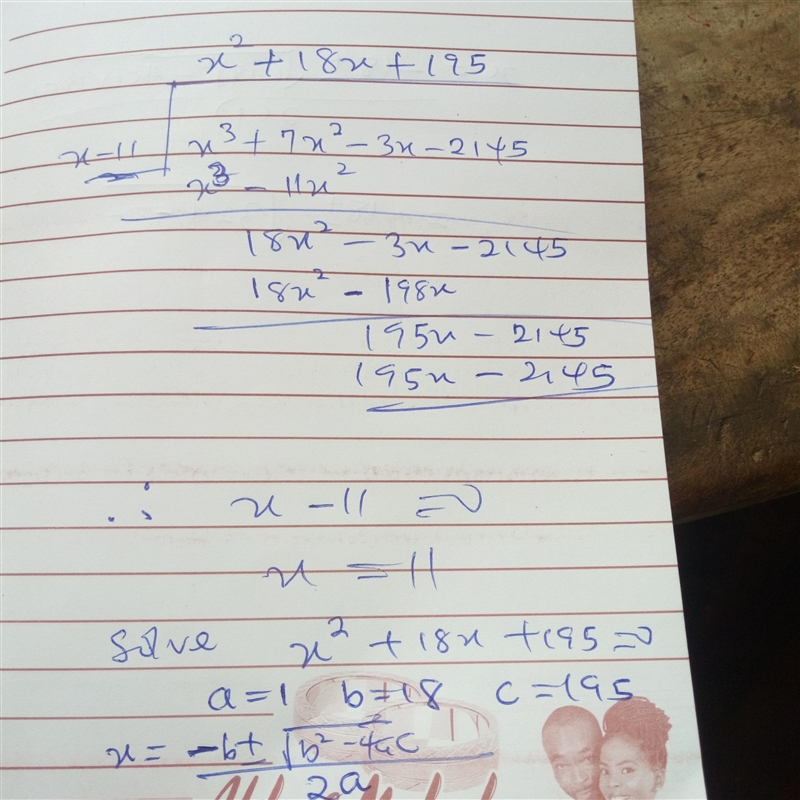 x² + 18x + 195
x-11 x³ + 7x² - 3x - 2145
x³ - 11x²
18x² - 3x - 2145
18x² - 198x
195x - 2145
195x - 2145
∴ x - 11 = 0
x = 11
Solve x² + 18x + 195 = 0
a = 1 b = 18 c = 195
x = -b ± √b² - 4ac
2a